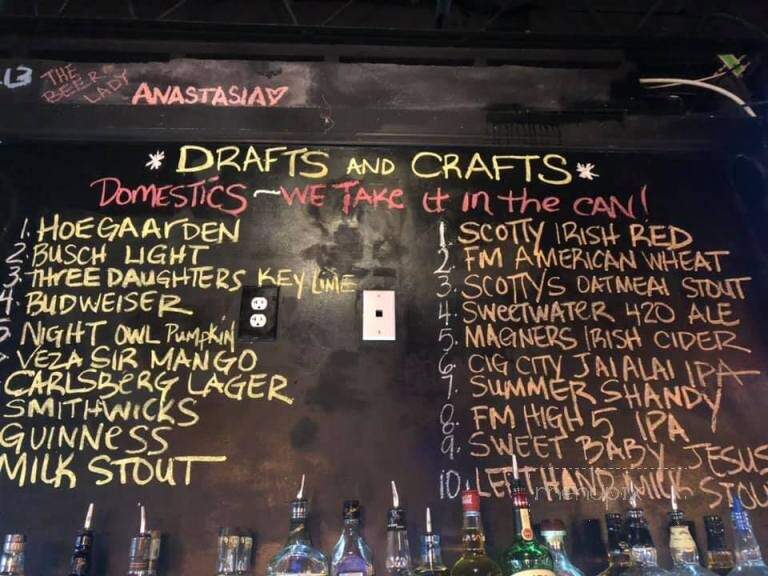 L3 THE BEER LADY ANASTASIA♡
* DRAFTS AND CRAFTS *
DOMESTICS ~ WE TAKE it in the CAN!
1. HOEGAARDEN
2. BUSCH LIGHT
3. THREE DAUGHTERS KEY LIME
4. BUDWEISER
5 NIGHT OWL PUMPKIN
VEZA SIR MANGO
CARLSBERG LAGER
SMITHWICKS
GUINNESS
MILK STOUT
1. SCOTTY IRISH RED
2. FM AMERICAN WHEAT
3. SCOTTY'S OATMEAL STOUT
4. SWEETWATER 420 ALE
5. MAGNERS IRISH CIDER
6. CIG CITY JAI ALAI IPA
7. SUMMER SHANDY
8. FM HIGH 5 IPA
9. SWEET BABY JESUS
10. LEFT HAND MILK STOU
menupix